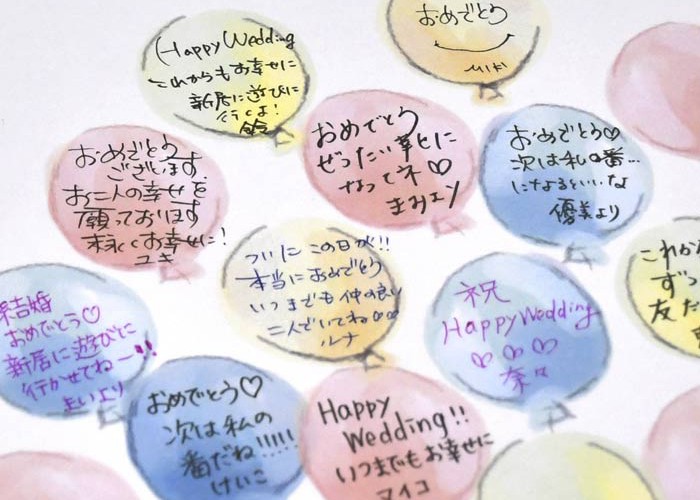 Happy Wedding
これからもお幸せに
新居に遊びに
行くよ!
おめでとう
MIKI
おめでとう
ございます
お二人の幸せを
願っております
末永くお幸せに!
ユキ
おめでとう
ぜったい幸せに
なってネ♡
まみより
おめでとう♡
次は私の番…
になるといいな
優美より
ついにこの日が!!
本当におめでとう
いつまでも仲の良い
二人でいてね♡♡
ルナ
祝
Happy Wedding
♡♡♡
奈々
これか
ずっ
友だ
結婚
おめでとう♡
新居に遊びに
行かせてねー!!
まいより
おめでとう♡
次は私の
番だね!!!!!
けいこ
Happy
Wedding!!
いつまでもお幸せに
マイコ